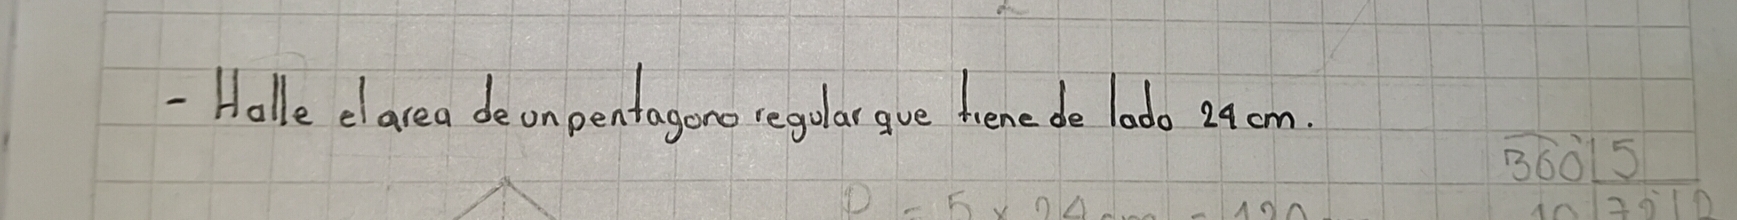 - Halle el area de un pentagono regular que tiene de lado 24 cm.
360 | 5
P = 5 x 24 cm = 120